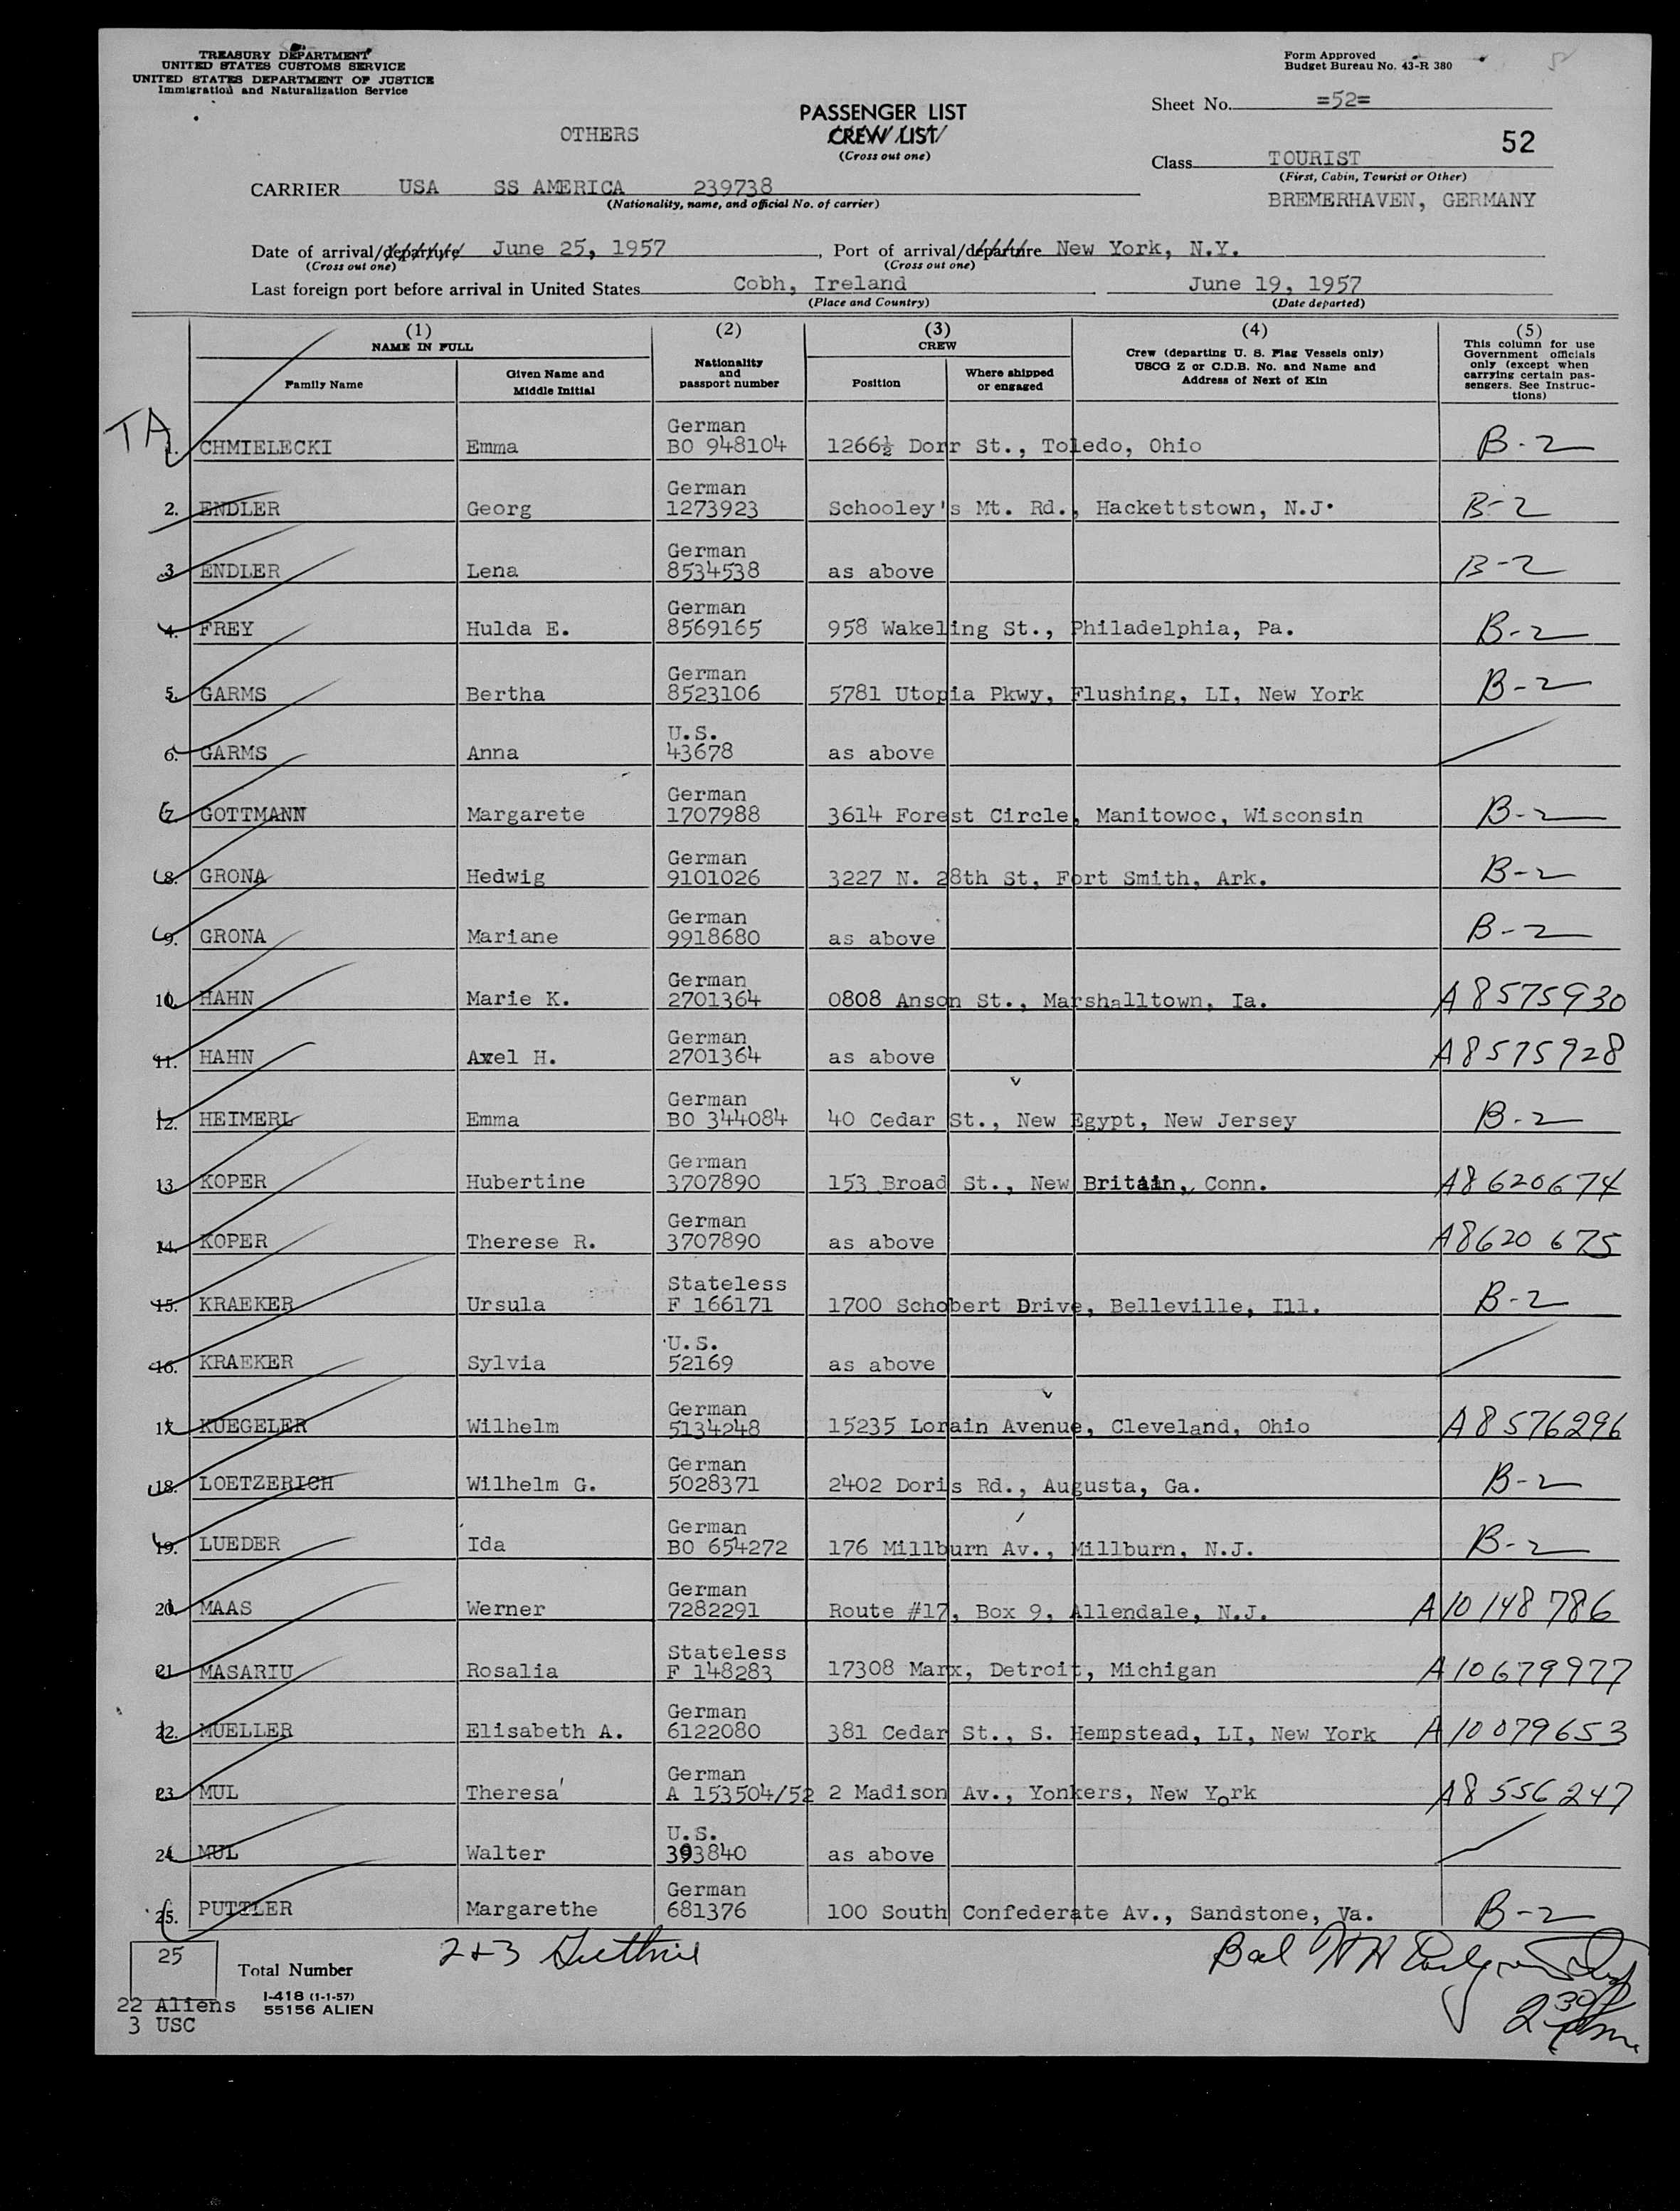 TREASURY DEPARTMENT
UNITED STATES CUSTOMS SERVICE
UNITED STATES DEPARTMENT OF JUSTICE
Immigration and Naturalization Service
Form Approved
Budget Bureau No. 43-R 380
Sheet No. =52=
PASSENGER LIST
OTHERS CREW LIST
(Cross out one)
52
Class TOURIST
(First, Cabin, Tourist or Other)
CARRIER USA SS AMERICA 239738
(Nationality, name, and official No. of carrier)
BREMERHAVEN, GERMANY
Date of arrival/departure June 25, 1957, Port of arrival/departure New York, N.Y.
(Cross out one) (Cross out one)
Last foreign port before arrival in United States Cobh, Ireland June 19, 1957
(Place and Country) (Date departed)
(1) (2) (3) (4) (5)
NAME IN FULL
Family Name
Given Name and
Middle Initial
Nationality
and
passport number
CREW
Position
Where shipped
or engaged
Crew (departing U. S. Flag Vessels only)
USCG Z or C.D.B. No. and Name and
Address of Next of Kin
This column for use
Government officials
only (except when
carrying certain pas-
sengers. See Instruc-
tions)
TA
German
1. CHMIELECKI Emma BO 948104 1266½ Dorr St., Toledo, Ohio B-2
German
2. ENDLER Georg 1273923 Schooley's Mt. Rd., Hackettstown, N.J. B-2
German
3. ENDLER Lena 8534538 as above B-2
German
4. FREY Hulda E. 8569165 958 Wakeling St., Philadelphia, Pa. B-2
German
5. GARMS Bertha 8523106 5781 Utopia Pkwy, Flushing, LI, New York B-2
U.S.
6. GARMS Anna 43678 as above
German
7. GOTTMANN Margarete 1707988 3614 Forest Circle, Manitowoc, Wisconsin B-2
German
8. GRONA Hedwig 9101026 3227 N. 28th St, Fort Smith, Ark. B-2
German
9. GRONA Mariane 9918680 as above B-2
German
10. HAHN Marie K. 2701364 0808 Anson St., Marshalltown, Ia. A8575930
German
11. HAHN Axel H. 2701364 as above A8575928
German
12. HEIMERL Emma BO 344084 40 Cedar St., New Egypt, New Jersey B-2
German
13. KOPER Hubertine 3707890 153 Broad St., New Britain, Conn. A8620674
German
14. KOPER Therese R. 3707890 as above A8620675
Stateless
15. KRAEKER Ursula F 166171 1700 Schobert Drive, Belleville, Ill. B-2
U.S.
16. KRAEKER Sylvia 52169 as above
German
17. KUEGELER Wilhelm 5134248 15235 Lorain Avenue, Cleveland, Ohio A8576296
German
18. LOETZERICH Wilhelm G. 5028371 2402 Doris Rd., Augusta, Ga. B-2
German
19. LUEDER Ida BO 654272 176 Millburn Av., Millburn, N.J. B-2
German
20. MAAS Werner 7282291 Route #17, Box 9, Allendale, N.J. A10148786
Stateless
21. MASARIU Rosalia F 148283 17308 Marx, Detroit, Michigan A10679977
German
22. MUELLER Elisabeth A. 6122080 381 Cedar St., S. Hempstead, LI, New York A10079653
German
23. MUL Theresa A 153504/52 2 Madison Av., Yonkers, New York A8556247
U.S.
24. MUL Walter 393840 as above
German
25. PUTTLER Margarethe 681376 100 South Confederate Av., Sandstone, Va. B-2
2+3 Guthrie
25
Total Number
I-418 (1-1-57)
55156 ALIEN
22 Aliens
3 USC
Bal
2 30 pm